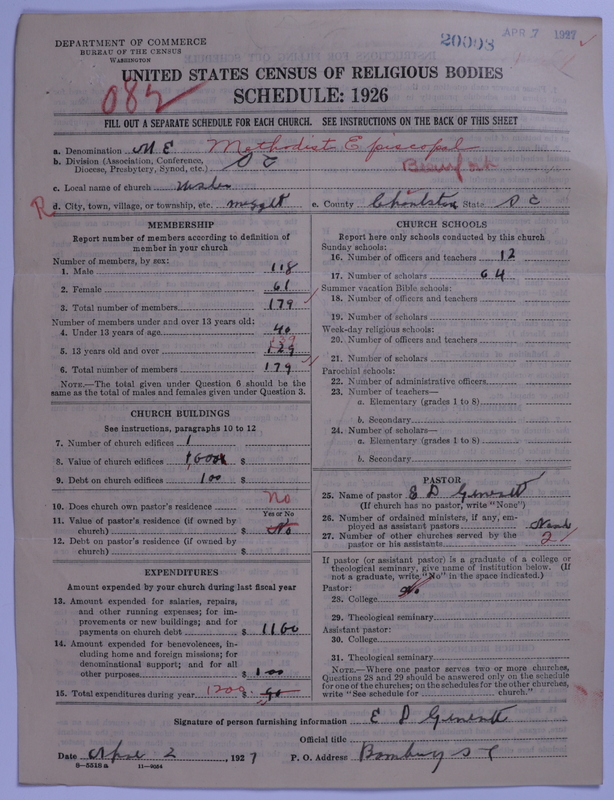 DEPARTMENT OF COMMERCE
BUREAU OF THE CENSUS
WASHINGTON
20998
APR 7 1927
UNITED STATES CENSUS OF RELIGIOUS BODIES
SCHEDULE: 1926
082
FILL OUT A SEPARATE SCHEDULE FOR EACH CHURCH. SEE INSTRUCTIONS ON THE BACK OF THIS SHEET
a. Denomination M. E Methodist Episcopal
b. Division (Association, Conference, Diocese, Presbytery, Synod, etc.) S C
c. Local name of church
R d. City, town, village, or township, etc. e. County Charlston State S C
MEMBERSHIP
Report number of members according to definition of member in your church
Number of members, by sex:
1. Male 118
2. Female 61
3. Total number of members 179
Number of members under and over 13 years old:
4. Under 13 years of age 40
139
5. 13 years old and over 129
6. Total number of members 179
NOTE.—The total given under Question 6 should be the same as the total of males and females given under Question 3.
CHURCH BUILDINGS
See instructions, paragraphs 10 to 12
7. Number of church edifices 1
8. Value of church edifices $
9. Debt on church edifices 100 $
10. Does church own pastor's residence No
Yes or No
11. Value of pastor's residence (if owned by church) $ No
12. Debt on pastor's residence (if owned by church) $
EXPENDITURES
Amount expended by your church during last fiscal year
13. Amount expended for salaries, repairs, and other running expenses; for improvements or new buildings; and for payments on church debt $ 1100
14. Amount expended for benevolences, including home and foreign missions; for denominational support; and for all other purposes $ 100
15. Total expenditures during year 1200 $
CHURCH SCHOOLS
Report here only schools conducted by this church
Sunday schools:
16. Number of officers and teachers 12
17. Number of scholars 64
Summer vacation Bible schools:
18. Number of officers and teachers
19. Number of scholars
Week-day religious schools:
20. Number of officers and teachers
21. Number of scholars
Parochial schools:
22. Number of administrative officers
23. Number of teachers—
a. Elementary (grades 1 to 8)
b. Secondary
24. Number of scholars—
a. Elementary (grades 1 to 8)
b. Secondary
PASTOR
25. Name of pastor E D Generett
(If church has no pastor, write "None")
26. Number of ordained ministers, if any, employed as assistant pastors
27. Number of other churches served by the pastor or his assistants 2
If pastor (or assistant pastor) is a graduate of a college or theological seminary, give name of institution below. (If not a graduate, write "No" in the space indicated.)
Pastor:
28. College No
29. Theological seminary
Assistant pastor:
30. College
31. Theological seminary
NOTE.—Where one pastor serves two or more churches, Questions 28 and 29 should be answered only on the schedule for one of the churches; on the schedules for the other churches, write "See schedule for church."
Signature of person furnishing information E D Generett
Official title
Date 2, 1927 P. O. Address S C
8—5518a 11—9054